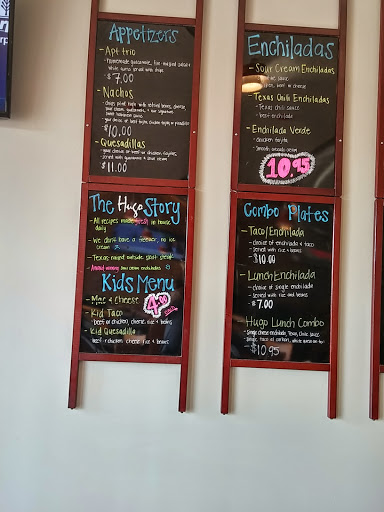 Appetizers
- Apt trio
homemade guacamole, fire-roasted salsa &
with chips
$7.00
- Nachos
chips piled high with refried beans, cheese
sour cream, guacamole, & our signature
$10.00
- Quesadillas
your choice of beef or chicken fajitas,
served with guacamole & sour cream
$11.00
The Hugo Story
- All recipes made fresh in house
daily
- We don't have a freezer, no ice
cream
- Texas round outside
- Award winning sour cream enchiladas
Kids Menu
- Mac & Cheese
4.00
- Kid Taco
beef or chicken, cheese, rice & beans
- Kid Quesadilla
beef or chicken cheese rice & beans
Enchiladas
- Sour Cream Enchiladas
sauce
chicken, beef or cheese
- Texas Chili Enchiladas
- Texas chili sauce
- beef enchilada
- Enchilada Verde
- chicken fajita
10.95
Combo Plates
- Taco/Enchilada
- choice of enchilada & taco
- served with rice & beans
- $10.00
- Lunch Enchilada
- choice of single enchilada
- served with rice and beans
- $7.00
- Hugo Lunch Combo
- Single cheese enchilada, Texas Chili Sauce
- $10.95